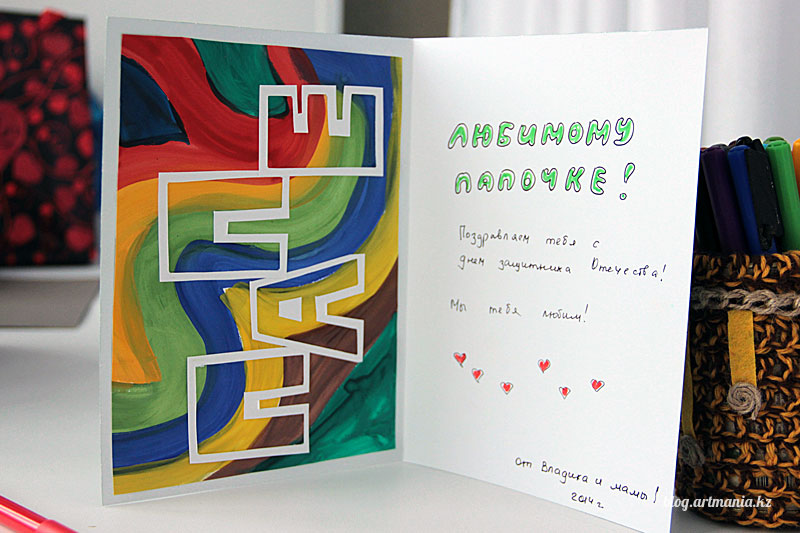 ПАПЕ
ЛЮБИМОМУ
ПАПОЧКЕ!
Поздравляем тебя с
днем защитника Отечества!
Мы тебя любим!
От Владика и мамы!
2014 г.
blog.artmania.kz